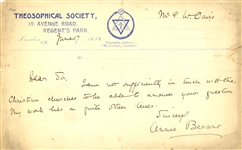 Mr P. W. Davis
THEOSOPHICAL SOCIETY,
19, AVENUE ROAD,
REGENT'S PARK,
London, June 7
Dear Sir,
I am not sufficiently in touch with the
Christian churches to be able to answer your question.
My work lies on quite other lines.
Sincerely
Annie Besant